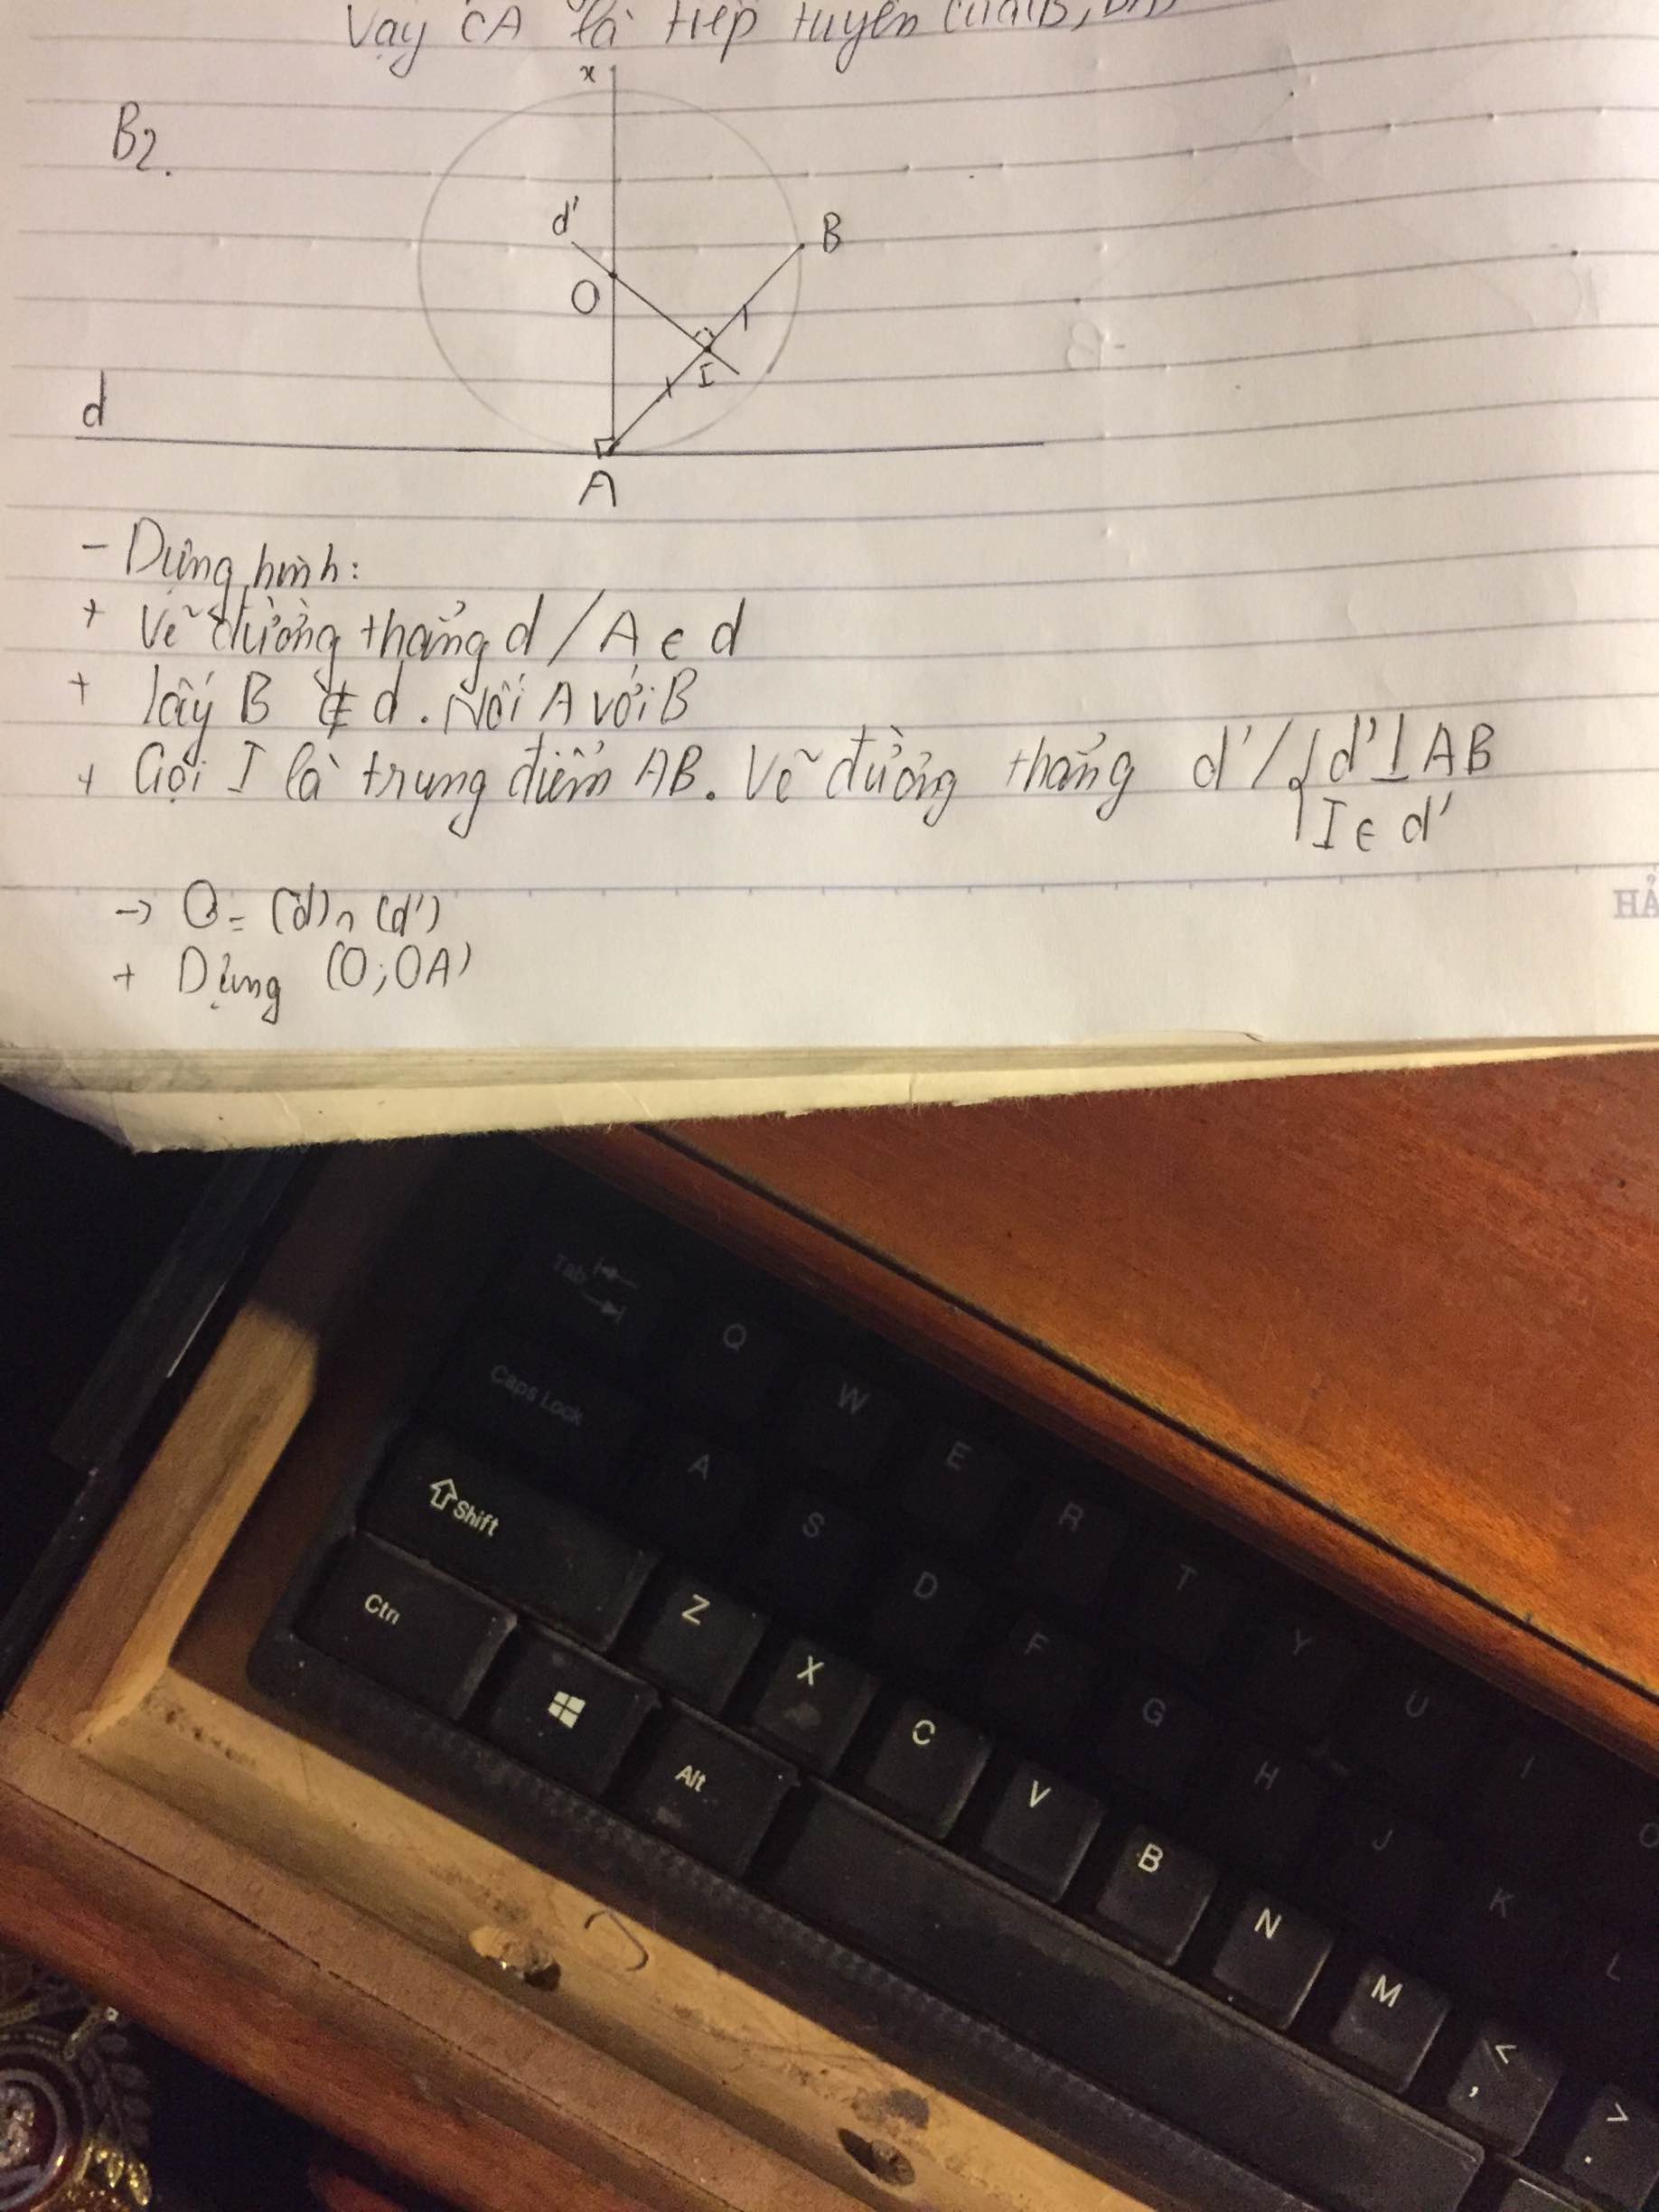 Vậy CA là tiếp tuyến của (B,
x
B2.
d'
B
O
I
d
A
- Dựng hình:
+ Vẽ đường thẳng d / A ∈ d
+ lấy B ∉ d. Nối A với B
+ Gọi I là trung điểm AB. Vẽ đường thẳng d' / { d' ⊥ AB
I ∈ d'
HẢ
-> O = (d) ∩ (d')
+ Dựng (O; OA)
Tab
Q W E R T Y U I O
Caps Lock A S D F G H J K L
Shift Z X C V B N M < , > .
Ctrl Alt